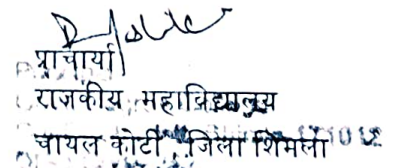 प्राचार्या
राजकीय महाविद्यालय
चायल कोटी, जिला शिमला